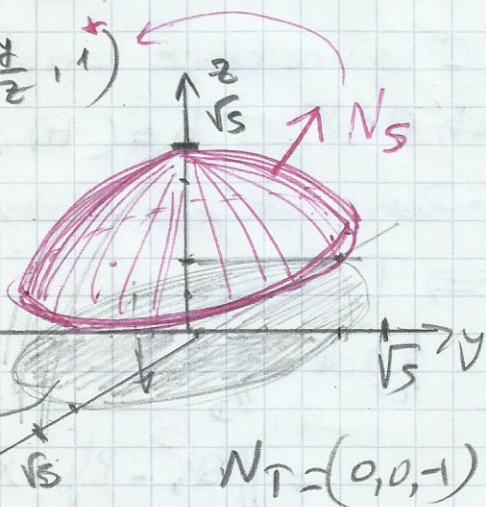 y/z , 1)
*
z
√5
N_S
√5
y
√5
N_T = (0,0,-1)